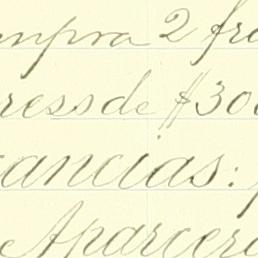 ompra 2 fra
ress de $300
tancias:
Aparcer